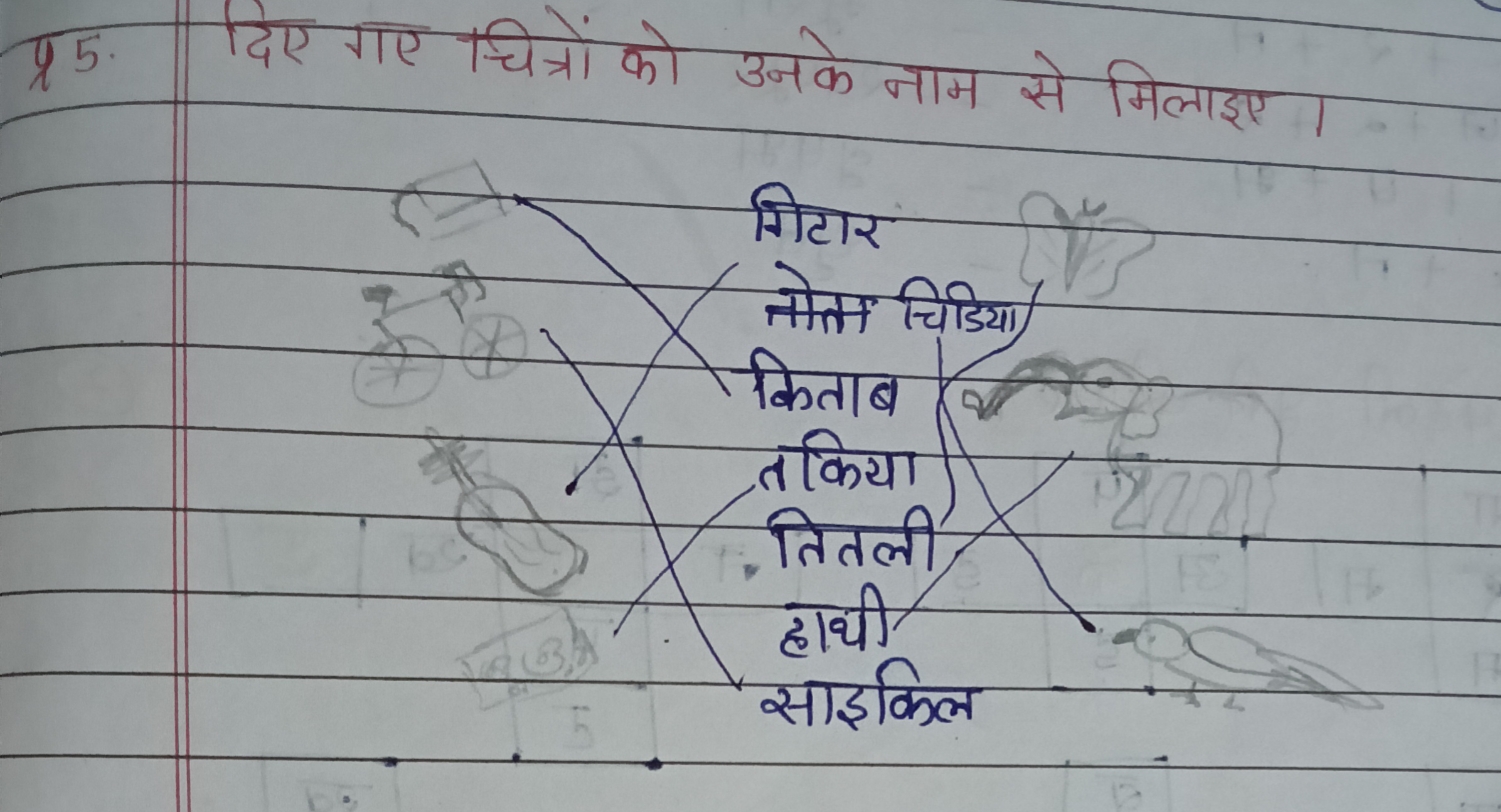 प्र 5. दिए गए चित्रों को उनके नाम से मिलाइए ।
गिटार
चिडिया
किताब
तकिया
तितली
हाथी
साइकिल